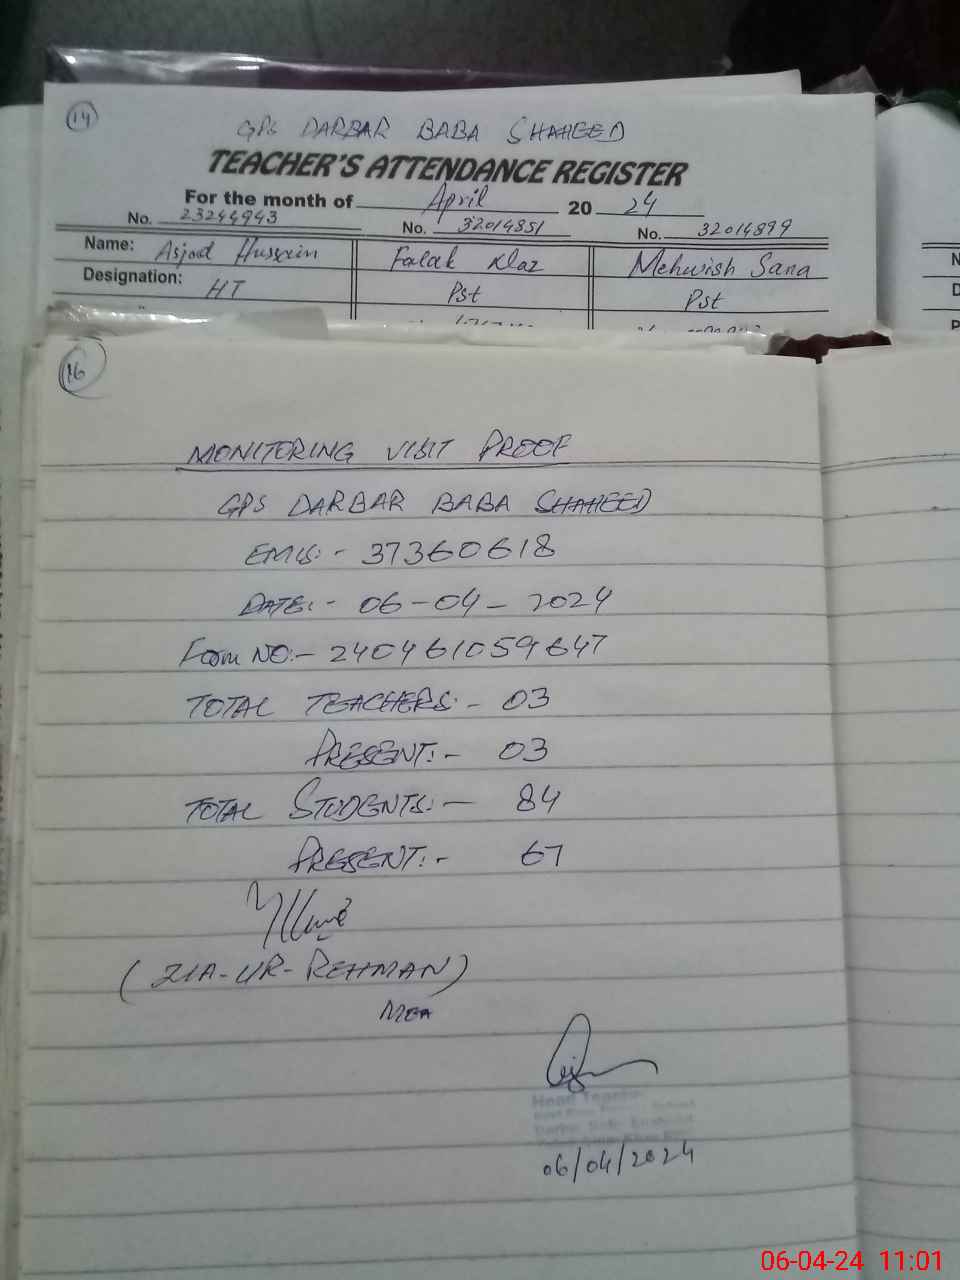 14
GPS DARBAR BABA SHAHEED
TEACHER'S ATTENDANCE REGISTER
For the month of April 2024
No. 23244943 No. 32014851 No. 32014899
Name: Asjad Hussain Falak Naz Mehwish Sana
Designation: HT Pst Pst
16
MONITORING VISIT PROOF
GPS DARBAR BABA SHAHEED
EMIS:- 37360618
DATE:- 06-04-2024
Form NO:- 240461059647
TOTAL TEACHERS:- 03
PRESENT:- 03
TOTAL STUDENTS:- 84
PRESENT:- 67
(ZIA-UR-REHMAN)
MEA
Head Teacher
06/04/2024
06-04-24 11:01